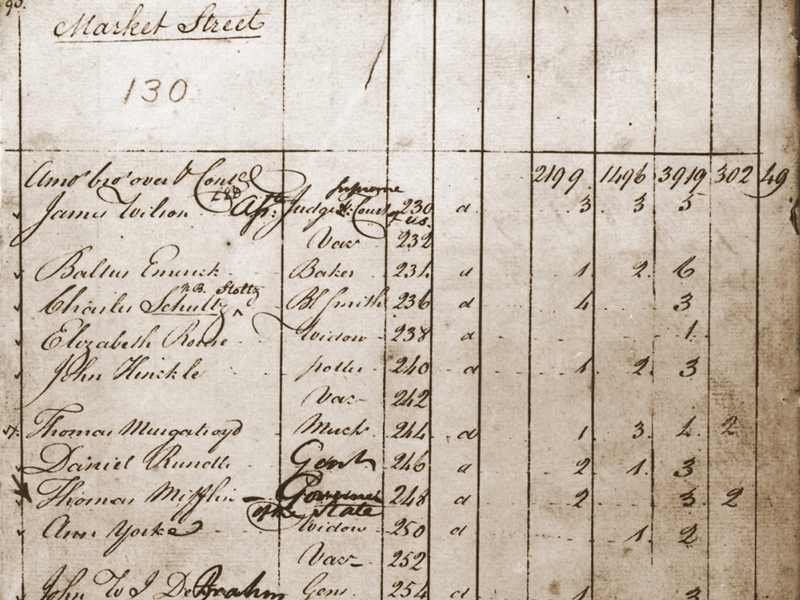 90.
Market Street
130
Amo.t bro.t over 2199 1496 3919 302 49
James Wilson Ass: Judge Supreme Court of US. 230 a 3 3 5
Vac 232
Baltus Emrick Baker 234 a 1 2 6
Charles Schultz N.B. Stoltz Bl Smith 236 a 4 3
Elizabeth Widow 238 a 1
John Hinckle potter 240 a 1 2 3
Vac 242
Thomas Murgatroyd Mercht 244 a 1 3 1 2
Daniel Rundle Gent 246 a 2 1 3
Thomas Mifflin - Governor of the State 248 a 2 3 2
Ann Yorke Widow 250 a 1 2
Vac 252
John W I De Brahm Gent 254 a 1 3